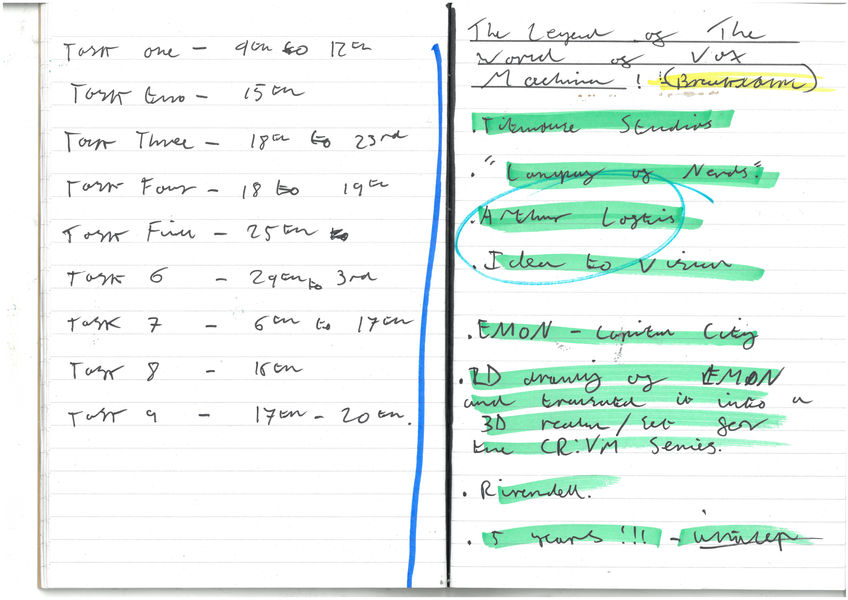 Task one - 9th to 12th
Task two - 15th
Task Three - 18th to 23rd
Task Four - 18 to 19th
Task Five - 25th to
Task 6 - 29th to 3rd
Task 7 - 6th to 17th
Task 8 - 16th
Task 9 - 17th - 20th.
The Legend of The
World of Vox
Machina! (Breakdown)
. Titmouse Studios
. "Company of Nerds."
. Arthur Loftis
. Idea to Vision
. EMON - Capital City
. 2D drawing of EMON
and translated it into a
3D realm / set for
the CR:VM Series.
. Rivendell.
. 5 years!!! -